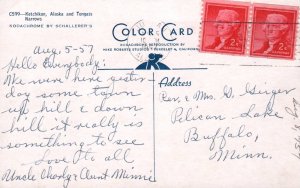 C599—Ketchikan, Alaska and Tongass
Narrows
KODACHROME BY SCHALLERER'S
COLOR CARD
KODACHROME REPRODUCTION BY
MIKE ROBERTS STUDIOS • BERKELEY 2, CALIFORNIA
Aug, 5-57
Hello Everybody:
We were here yester
day some town
up hill & down
hill it really is
something to see
Love to all
Uncle Charly & Aunt Minnie
Address
Rev. & Mrs. G. Geiger
Pelican Lake
Buffalo,
Minn.
2¢ 2¢